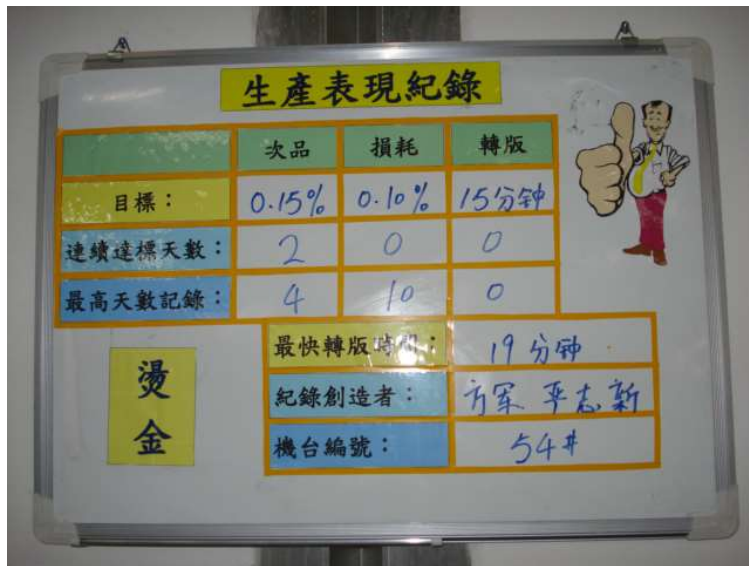 生產表現紀錄
次品 損耗 轉版
目標： 0.15% 0.10% 15分钟
連續達標天數： 2 0 0
最高天數記錄： 4 10 0
燙金
最快轉版時間： 19分钟
紀錄創造者： 方军 平志新
機台編號： 54#